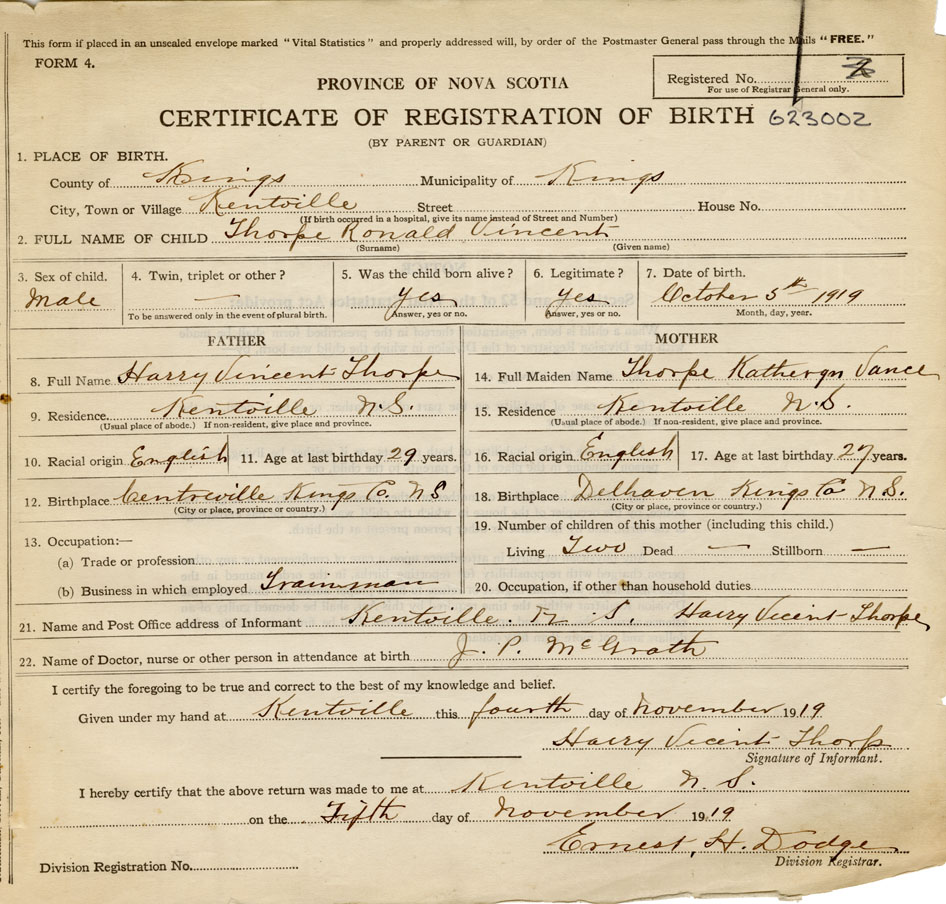 This form if placed in an unsealed envelope marked "Vital Statistics" and properly addressed will, by order of the Postmaster General pass through the Mails "FREE."
FORM 4.
PROVINCE OF NOVA SCOTIA
Registered No.
For use of Registrar General only.
CERTIFICATE OF REGISTRATION OF BIRTH 623002
(BY PARENT OR GUARDIAN)
1. PLACE OF BIRTH.
County of Kings Municipality of Kings
City, Town or Village Kentville Street House No.
(If birth occurred in a hospital, give its name instead of Street and Number)
2. FULL NAME OF CHILD Thorpe Ronald Vincent
(Surname) (Given name)
3. Sex of child. 4. Twin, triplet or other? 5. Was the child born alive? 6. Legitimate? 7. Date of birth.
Male — yes yes October 5th 1919
To be answered only in the event of plural birth. Answer, yes or no. Answer, yes or no. Month, day, year.
FATHER MOTHER
8. Full Name Harry Vincent Thorpe 14. Full Maiden Name Thorpe Katheryn Vance
9. Residence Kentville N.S. 15. Residence Kentville N.S.
(Usual place of abode.) If non-resident, give place and province. (Usual place of abode.) If non-resident, give place and province.
10. Racial origin English 11. Age at last birthday 29 years. 16. Racial origin English 17. Age at last birthday 27 years.
12. Birthplace Centreville Kings Co. NS 18. Birthplace Delhaven Kings Co N.S.
(City or place, province or country.) (City or place, province or country.)
13. Occupation:— 19. Number of children of this mother (including this child.)
(a) Trade or profession Living Two Dead — Stillborn —
(b) Business in which employed Trainman 20. Occupation, if other than household duties
21. Name and Post Office address of Informant Kentville. N. S. Harry Vicent Thorpe
22. Name of Doctor, nurse or other person in attendance at birth J. P. McGrath
I certify the foregoing to be true and correct to the best of my knowledge and belief.
Given under my hand at Kentville this fourth day of November 1919
Harry Vicent Thorp
Signature of Informant.
I hereby certify that the above return was made to me at Kentville N. S.
on the Fifth day of November 1919
Ernest, H. Dodge
Division Registration No. Division Registrar.